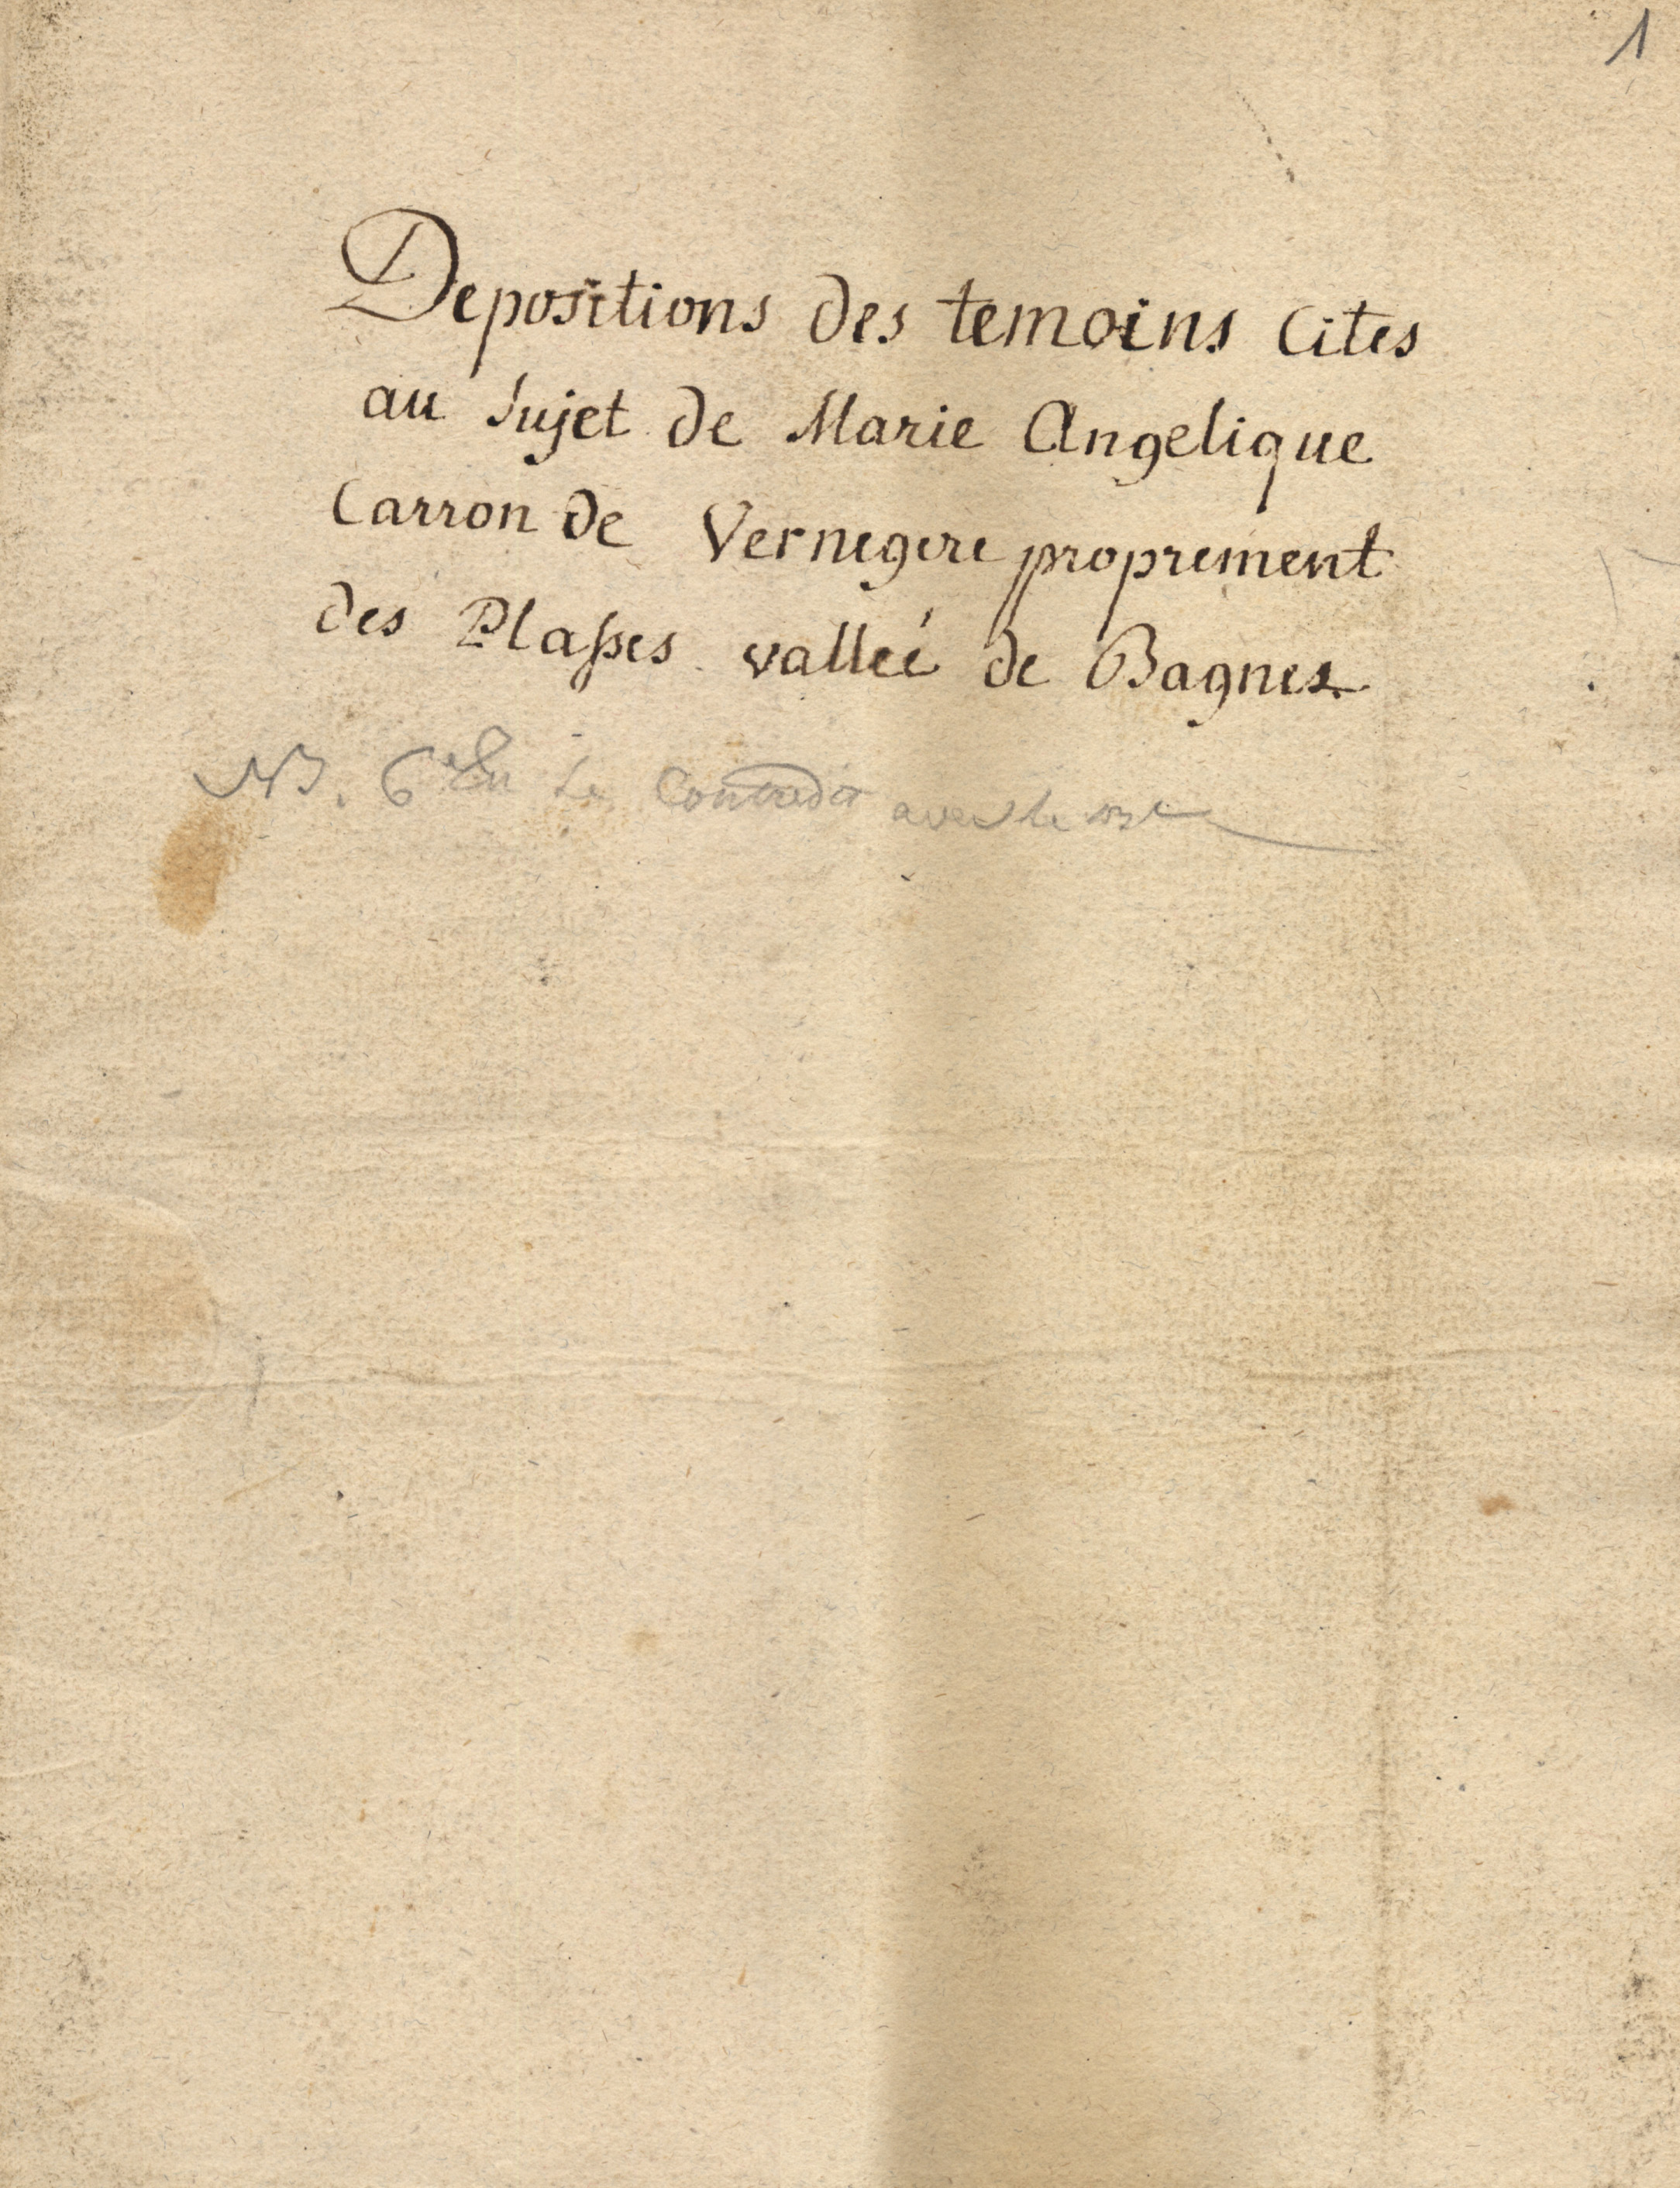 1
Depositions des temoins cites
au sujet de Marie Angelique
Carron de Vernegere proprement
des Plasses valleé de Bagnes
NB. se contredit avec le